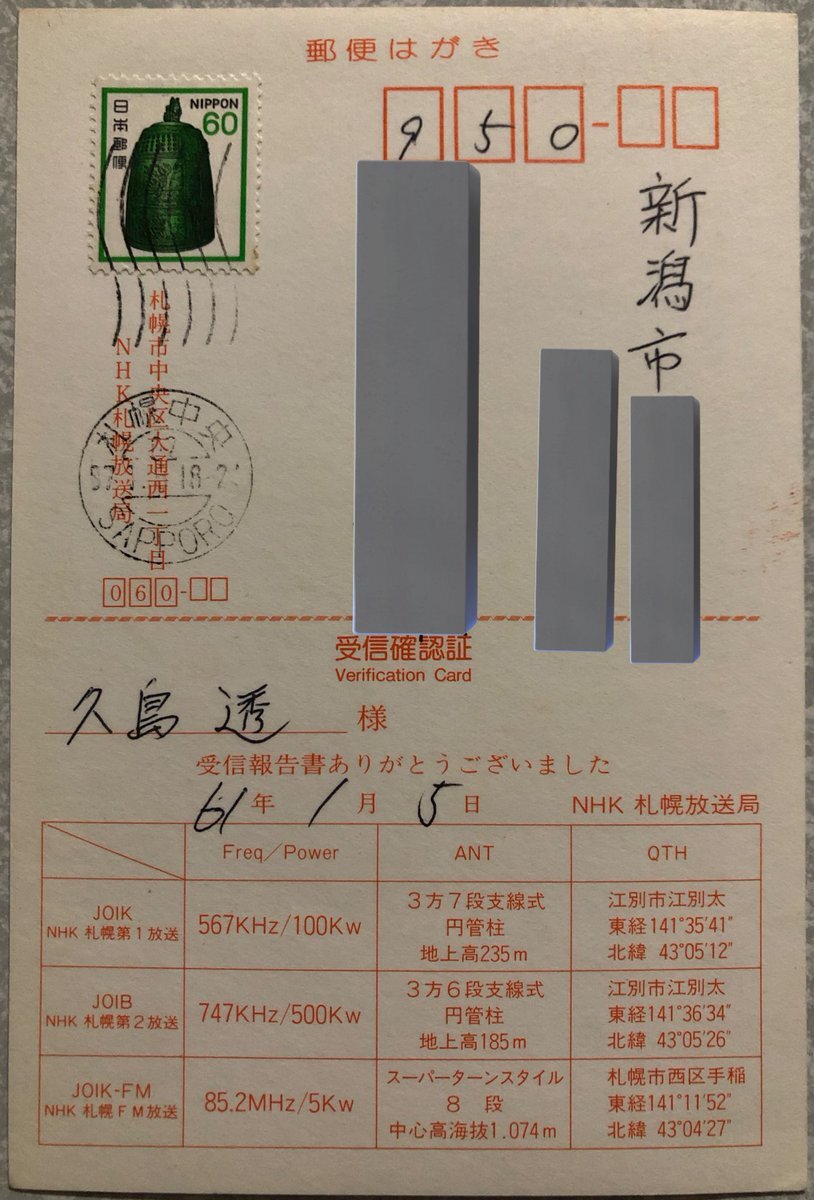 郵便はがき
日本郵便
NIPPON
60
950-
新潟市
札幌市中央区大通西一丁目
NHK札幌放送局
札幌中央
SAPPORO
060-
受信確認証
Verification Card
久島 透 様
受信報告書ありがとうございました
61年 1月 5日 NHK 札幌放送局
Freq/Power ANT QTH
JOIK
NHK 札幌第1放送
567KHz/100Kw
3方7段支線式
円管柱
地上高235m
江別市江別太
東経141°35′41″
北緯 43°05′12″
JOIB
NHK 札幌第2放送
747KHz/500Kw
3方6段支線式
円管柱
地上高185m
江別市江別太
東経141°36′34″
北緯 43°05′26″
JOIK-FM
NHK 札幌FM放送
85.2MHz/5Kw
スーパーターンスタイル
8 段
中心高海抜1.074m
札幌市西区手稲
東経141°11′52″
北緯 43°04′27″